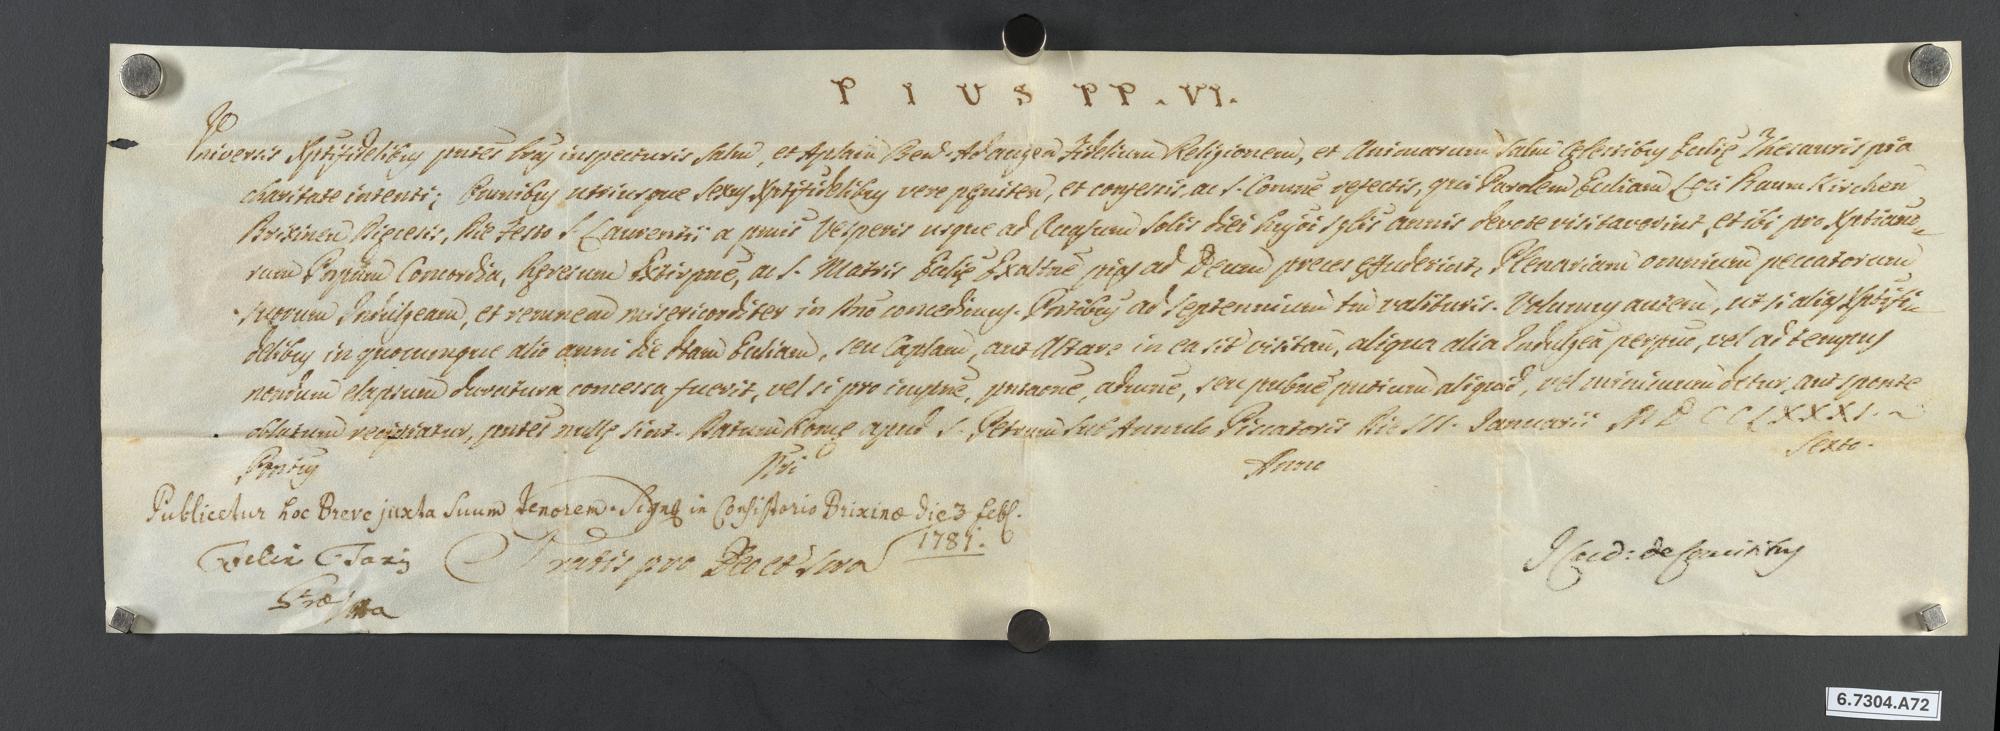 PIUS PP. VI.
Universis Xptifidelibus pntes lras inspecturis Salm, et Aplicam Ben. Ad augen Fidelium Religionem, et Animarum Salm Celestibus Ecclię Thesauris pia
charitate intenti; Omnibus utriusque Sexus Xptifidelibus vere pęniten, et confessis, ac S. Comne refectis, qui Parolem Eccliam Loci Raum Kirchen
Brixinen Dięcesis, Die Festo S. Laurentii a pmis Vesperis usque ad Occasum Solis diei hujusmodi sglis annis devote visitaverint, et ibi pro Xptiano-
rum Pnpum Concordia, hęresum Extirpne, ac S. Matris Ecclię Exaltne pias ad Deum preces effuderint, Plenariam omnium peccatorum
suorum Indulgeam, et remnem misericorditer in Dno concedimus. Pntibus ad Septennium tm valituris. Volumus autem, ut si alias Xptifi-
delibus in quocumque alio anni die dtam Eccliam, seu Caplam, aut Altare in ea sit visitan, aliqua alia Indulgea perptuo, vel ad tempus
nondum elapsum duratura concessa fuerit, vel si pro impne, pntaone, admne, seu publne pntium aliquid, vel minimum detur, aut sponte
oblatum recipiatur, pntes nullę sint. Datum Romę apud S. Petrum Sub Annulo Piscatoris Die III. Januarii MDCCLXXXI.
Pontus Nri Anno Sexto.
Publicetur hoc Breve juxta Suum tenorem. Sign in Consistorio Brixinæ die 3 Feb.
1781.
Gratis pro Deo et Sera
J Card: de Comitibus